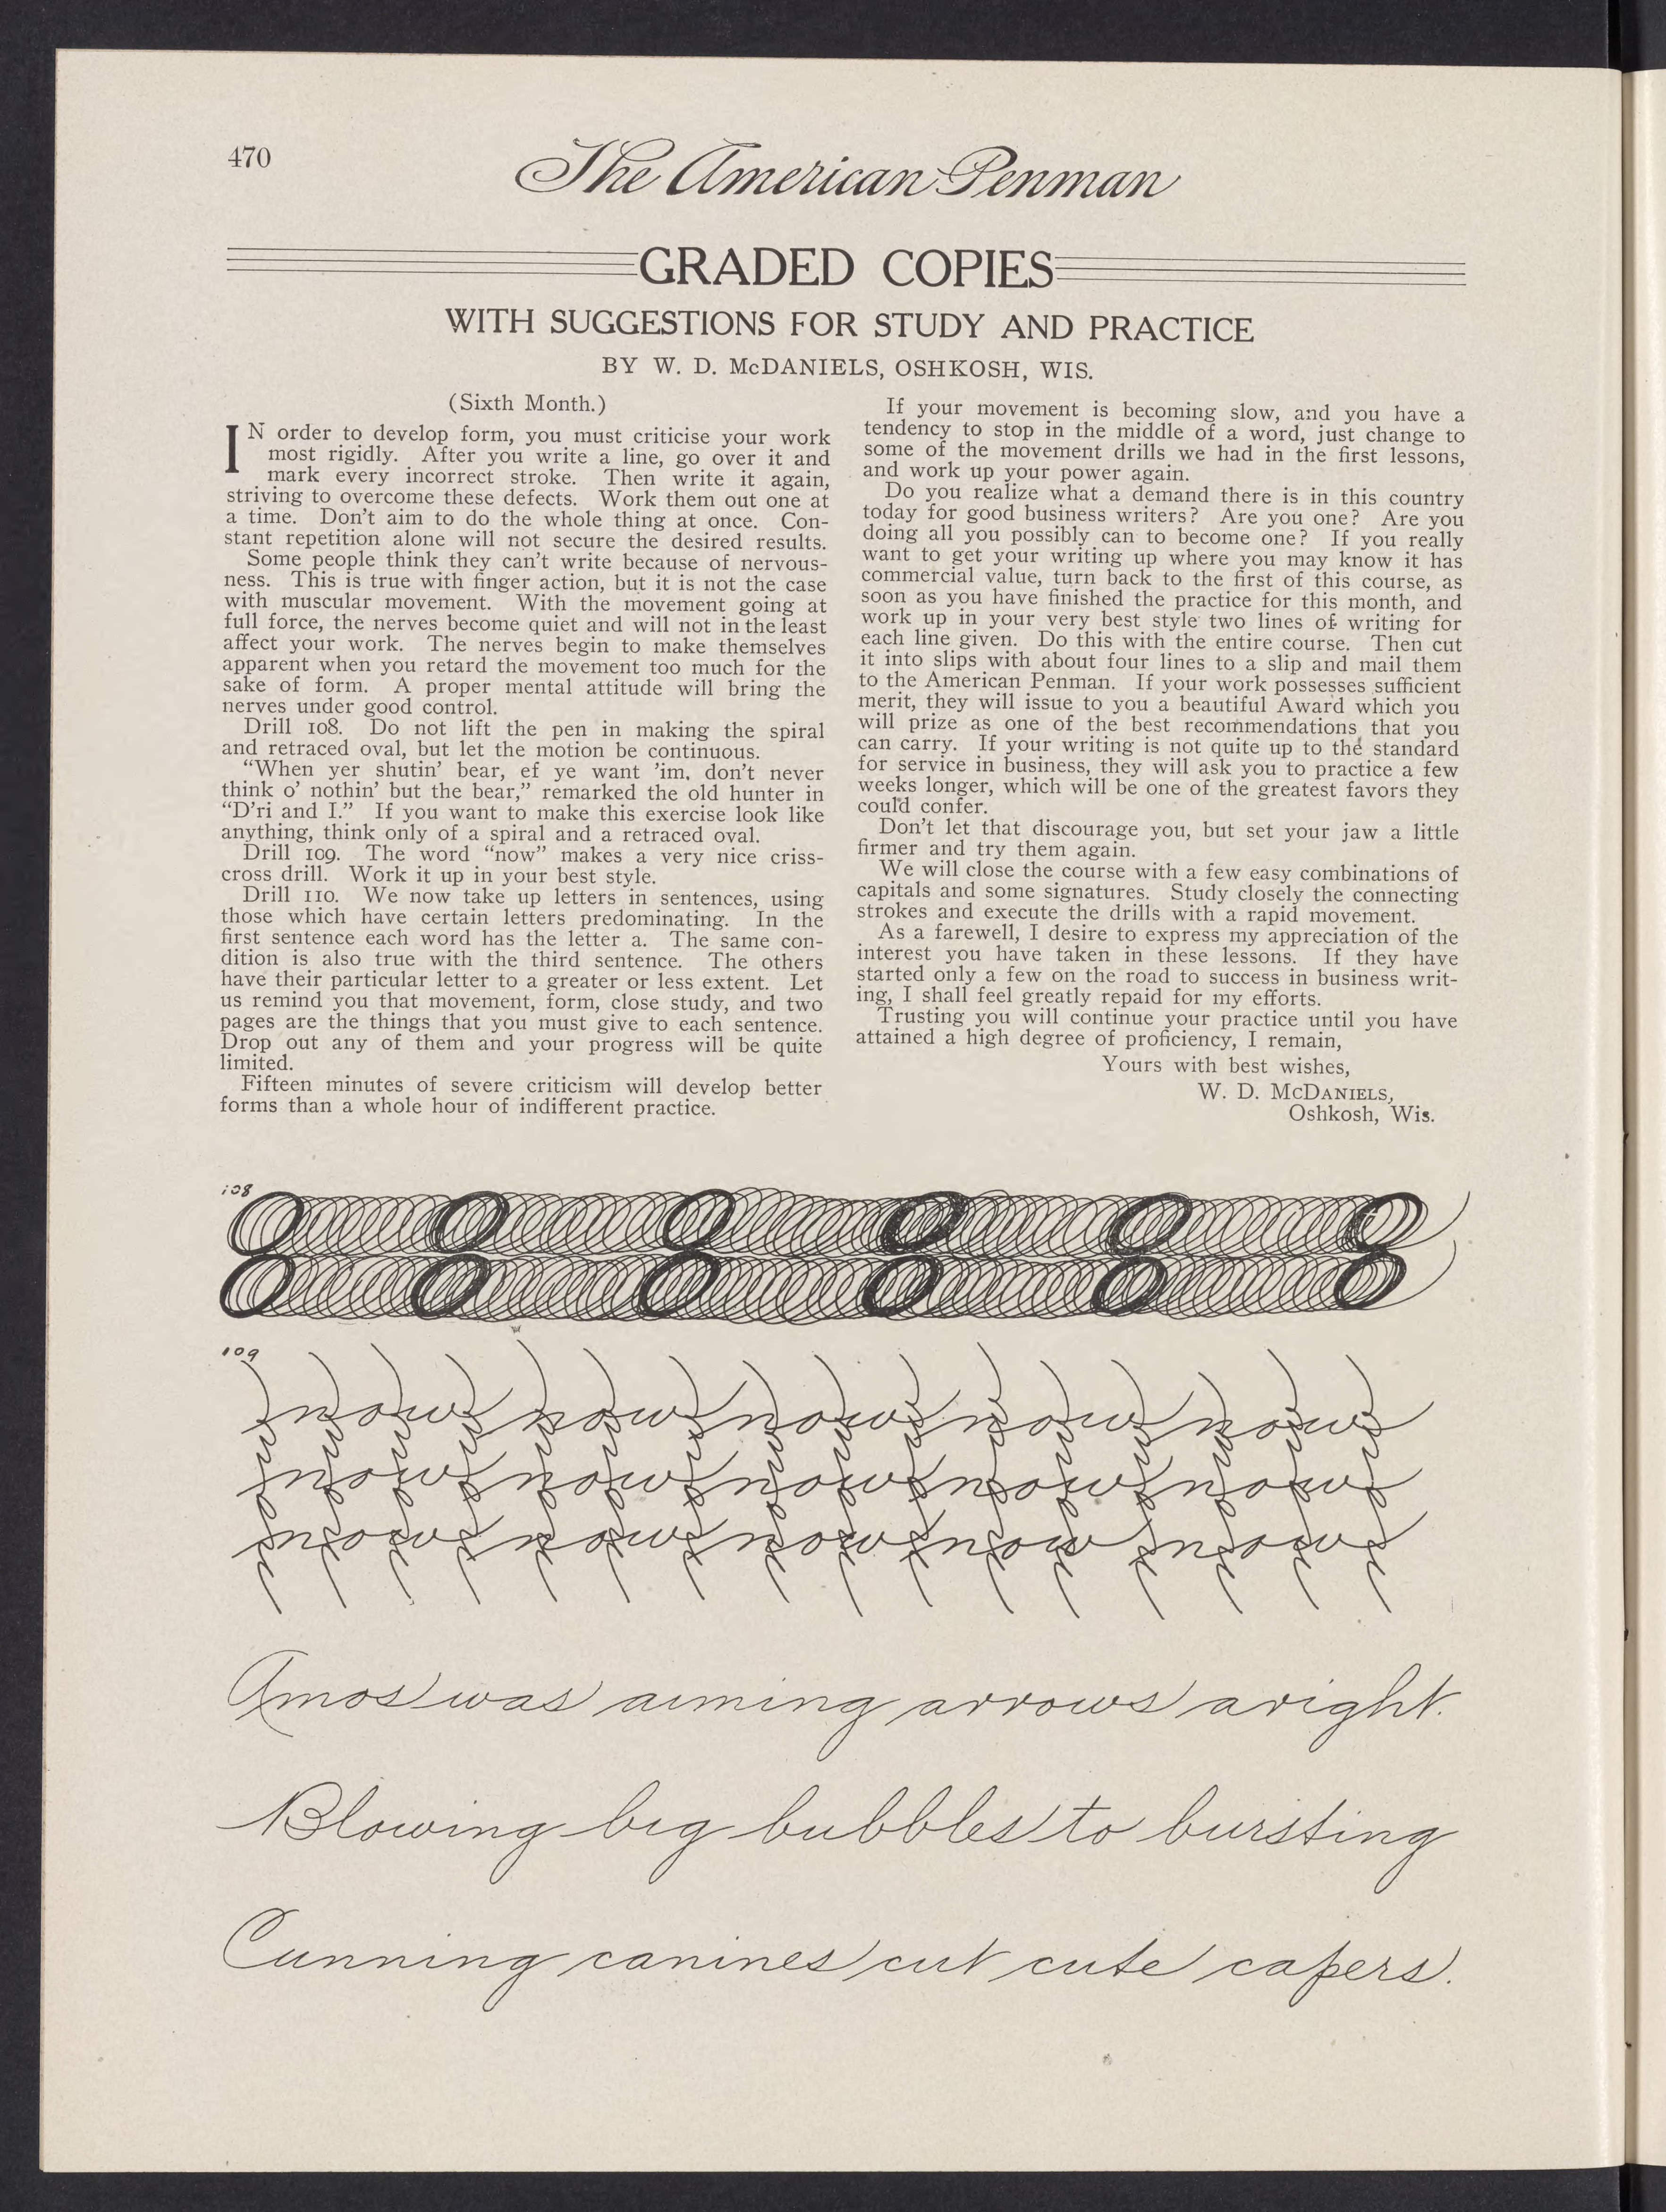 470
The American Penman
GRADED COPIES
WITH SUGGESTIONS FOR STUDY AND PRACTICE
BY W. D. McDANIELS, OSHKOSH, WIS.
(Sixth Month.)
IN order to develop form, you must criticise your work
most rigidly. After you write a line, go over it and
mark every incorrect stroke. Then write it again,
striving to overcome these defects. Work them out one at
a time. Don't aim to do the whole thing at once. Con-
stant repetition alone will not secure the desired results.
Some people think they can't write because of nervous-
ness. This is true with finger action, but it is not the case
with muscular movement. With the movement going at
full force, the nerves become quiet and will not in the least
affect your work. The nerves begin to make themselves
apparent when you retard the movement too much for the
sake of form. A proper mental attitude will bring the
nerves under good control.
Drill 108. Do not lift the pen in making the spiral
and retraced oval, but let the motion be continuous.
"When yer shutin' bear, ef ye want 'im, don't never
think o' nothin' but the bear," remarked the old hunter in
"D'ri and I." If you want to make this exercise look like
anything, think only of a spiral and a retraced oval.
Drill 109. The word "now" makes a very nice criss-
cross drill. Work it up in your best style.
Drill 110. We now take up letters in sentences, using
those which have certain letters predominating. In the
first sentence each word has the letter a. The same con-
dition is also true with the third sentence. The others
have their particular letter to a greater or less extent. Let
us remind you that movement, form, close study, and two
pages are the things that you must give to each sentence.
Drop out any of them and your progress will be quite
limited.
Fifteen minutes of severe criticism will develop better
forms than a whole hour of indifferent practice.
If your movement is becoming slow, and you have a
tendency to stop in the middle of a word, just change to
some of the movement drills we had in the first lessons,
and work up your power again.
Do you realize what a demand there is in this country
today for good business writers? Are you one? Are you
doing all you possibly can to become one? If you really
want to get your writing up where you may know it has
commercial value, turn back to the first of this course, as
soon as you have finished the practice for this month, and
work up in your very best style two lines of writing for
each line given. Do this with the entire course. Then cut
it into slips with about four lines to a slip and mail them
to the American Penman. If your work possesses sufficient
merit, they will issue to you a beautiful Award which you
will prize as one of the best recommendations that you
can carry. If your writing is not quite up to the standard
for service in business, they will ask you to practice a few
weeks longer, which will be one of the greatest favors they
could confer.
Don't let that discourage you, but set your jaw a little
firmer and try them again.
We will close the course with a few easy combinations of
capitals and some signatures. Study closely the connecting
strokes and execute the drills with a rapid movement.
As a farewell, I desire to express my appreciation of the
interest you have taken in these lessons. If they have
started only a few on the road to success in business writ-
ing, I shall feel greatly repaid for my efforts.
Trusting you will continue your practice until you have
attained a high degree of proficiency, I remain,
Yours with best wishes,
W. D. McDANIELS,
Oshkosh, Wis.
108
109
now now now now now
now now now now now
now now now now now
Amos was aiming arrows aright.
Blowing big bubbles to bursting
Cunning canines cut cute capers.